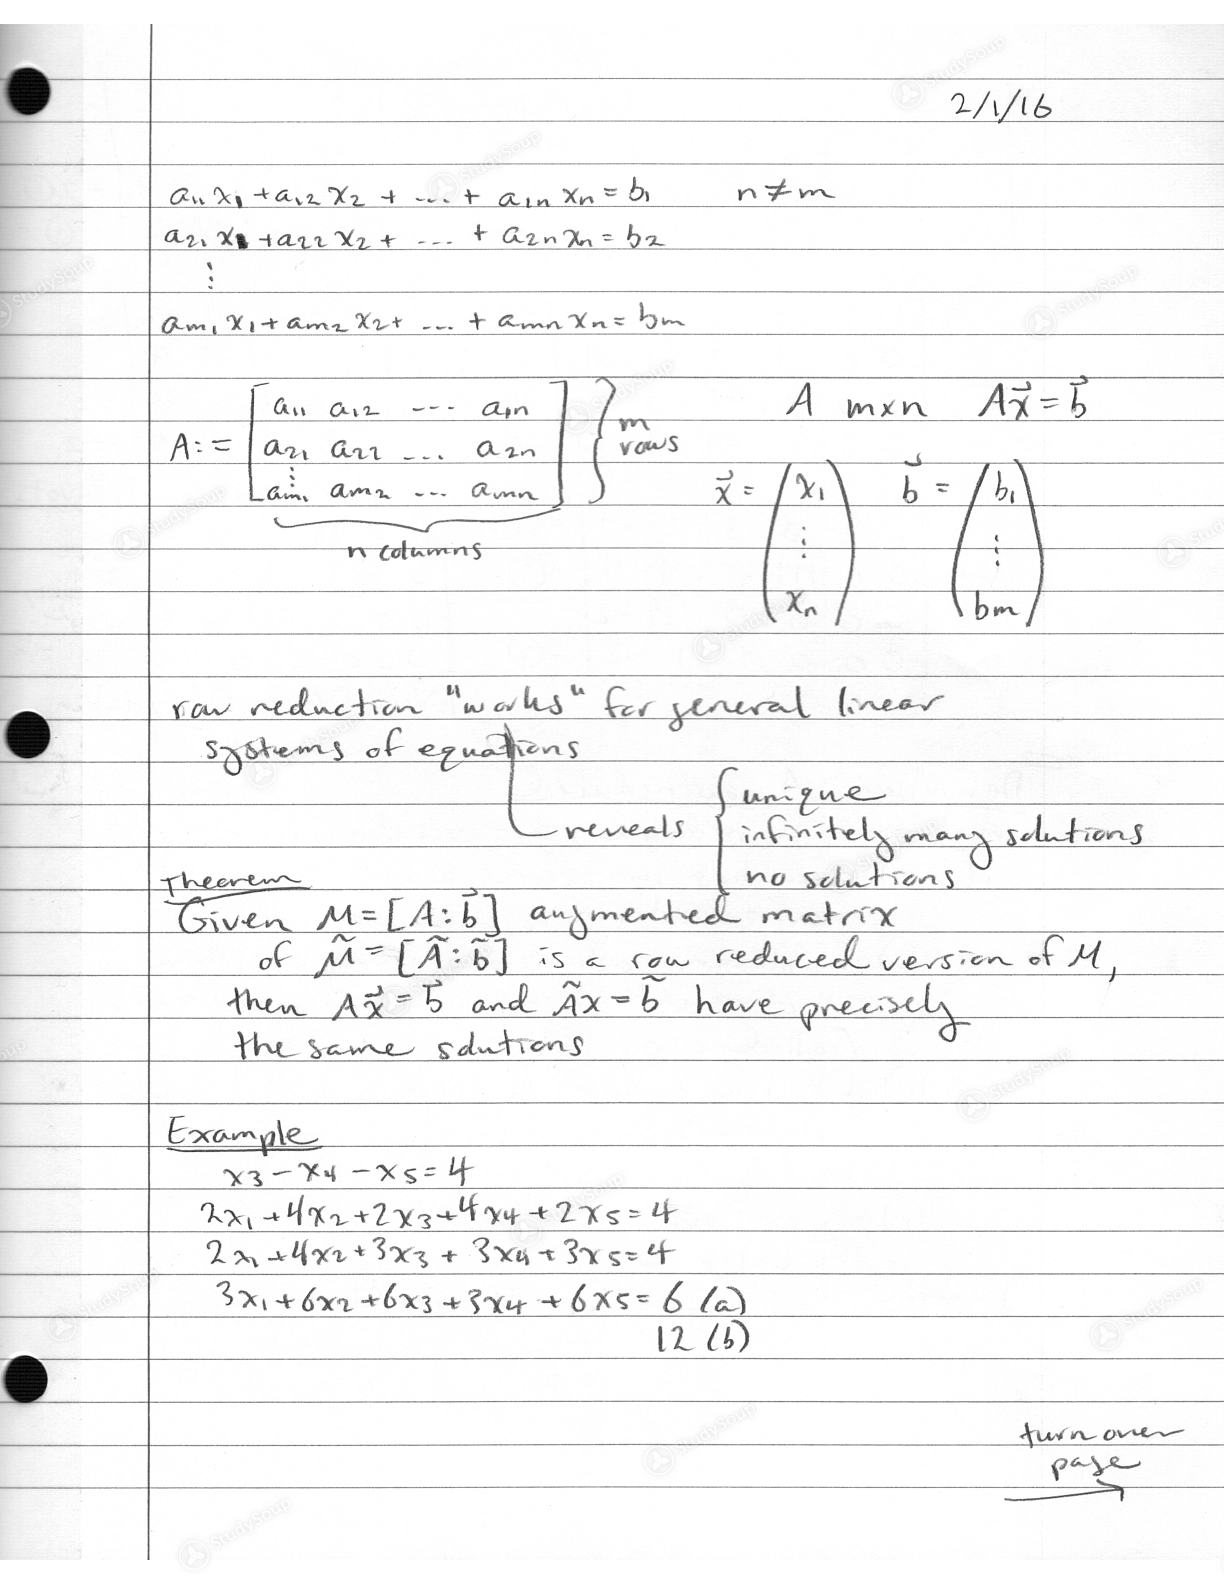 2/1/16
a11 x1 + a12 x2 + ... + a1n xn = b1 n ≠ m
a21 x1 + a22 x2 + ... + a2n xn = b2
⋮
am1 x1 + am2 x2 + ... + amn xn = bm
A m×n Ax⃗ = b⃗
A := [ a11 a12 --- a1n
a21 a22 ... a2n
⋮
am1 am2 --- amn ] } m rows
n columns
x⃗ = ( x1 ⋮ xn ) b⃗ = ( b1 ⋮ bm )
row reduction "works" for general linear
systems of equations
reveals { unique
infinitely many solutions
no solutions
Theorem
Given M = [A : b⃗] augmented matrix
of M̃ = [Ã : b̃] is a row reduced version of M,
then Ax⃗ = b⃗ and Ãx = b̃ have precisely
the same solutions
Example
x3 - x4 - x5 = 4
2x1 + 4x2 + 2x3 + 4x4 + 2x5 = 4
2x1 + 4x2 + 3x3 + 3x4 + 3x5 = 4
3x1 + 6x2 + 6x3 + 3x4 + 6x5 = 6 (a)
12 (b)
turn over
page
StudySoup